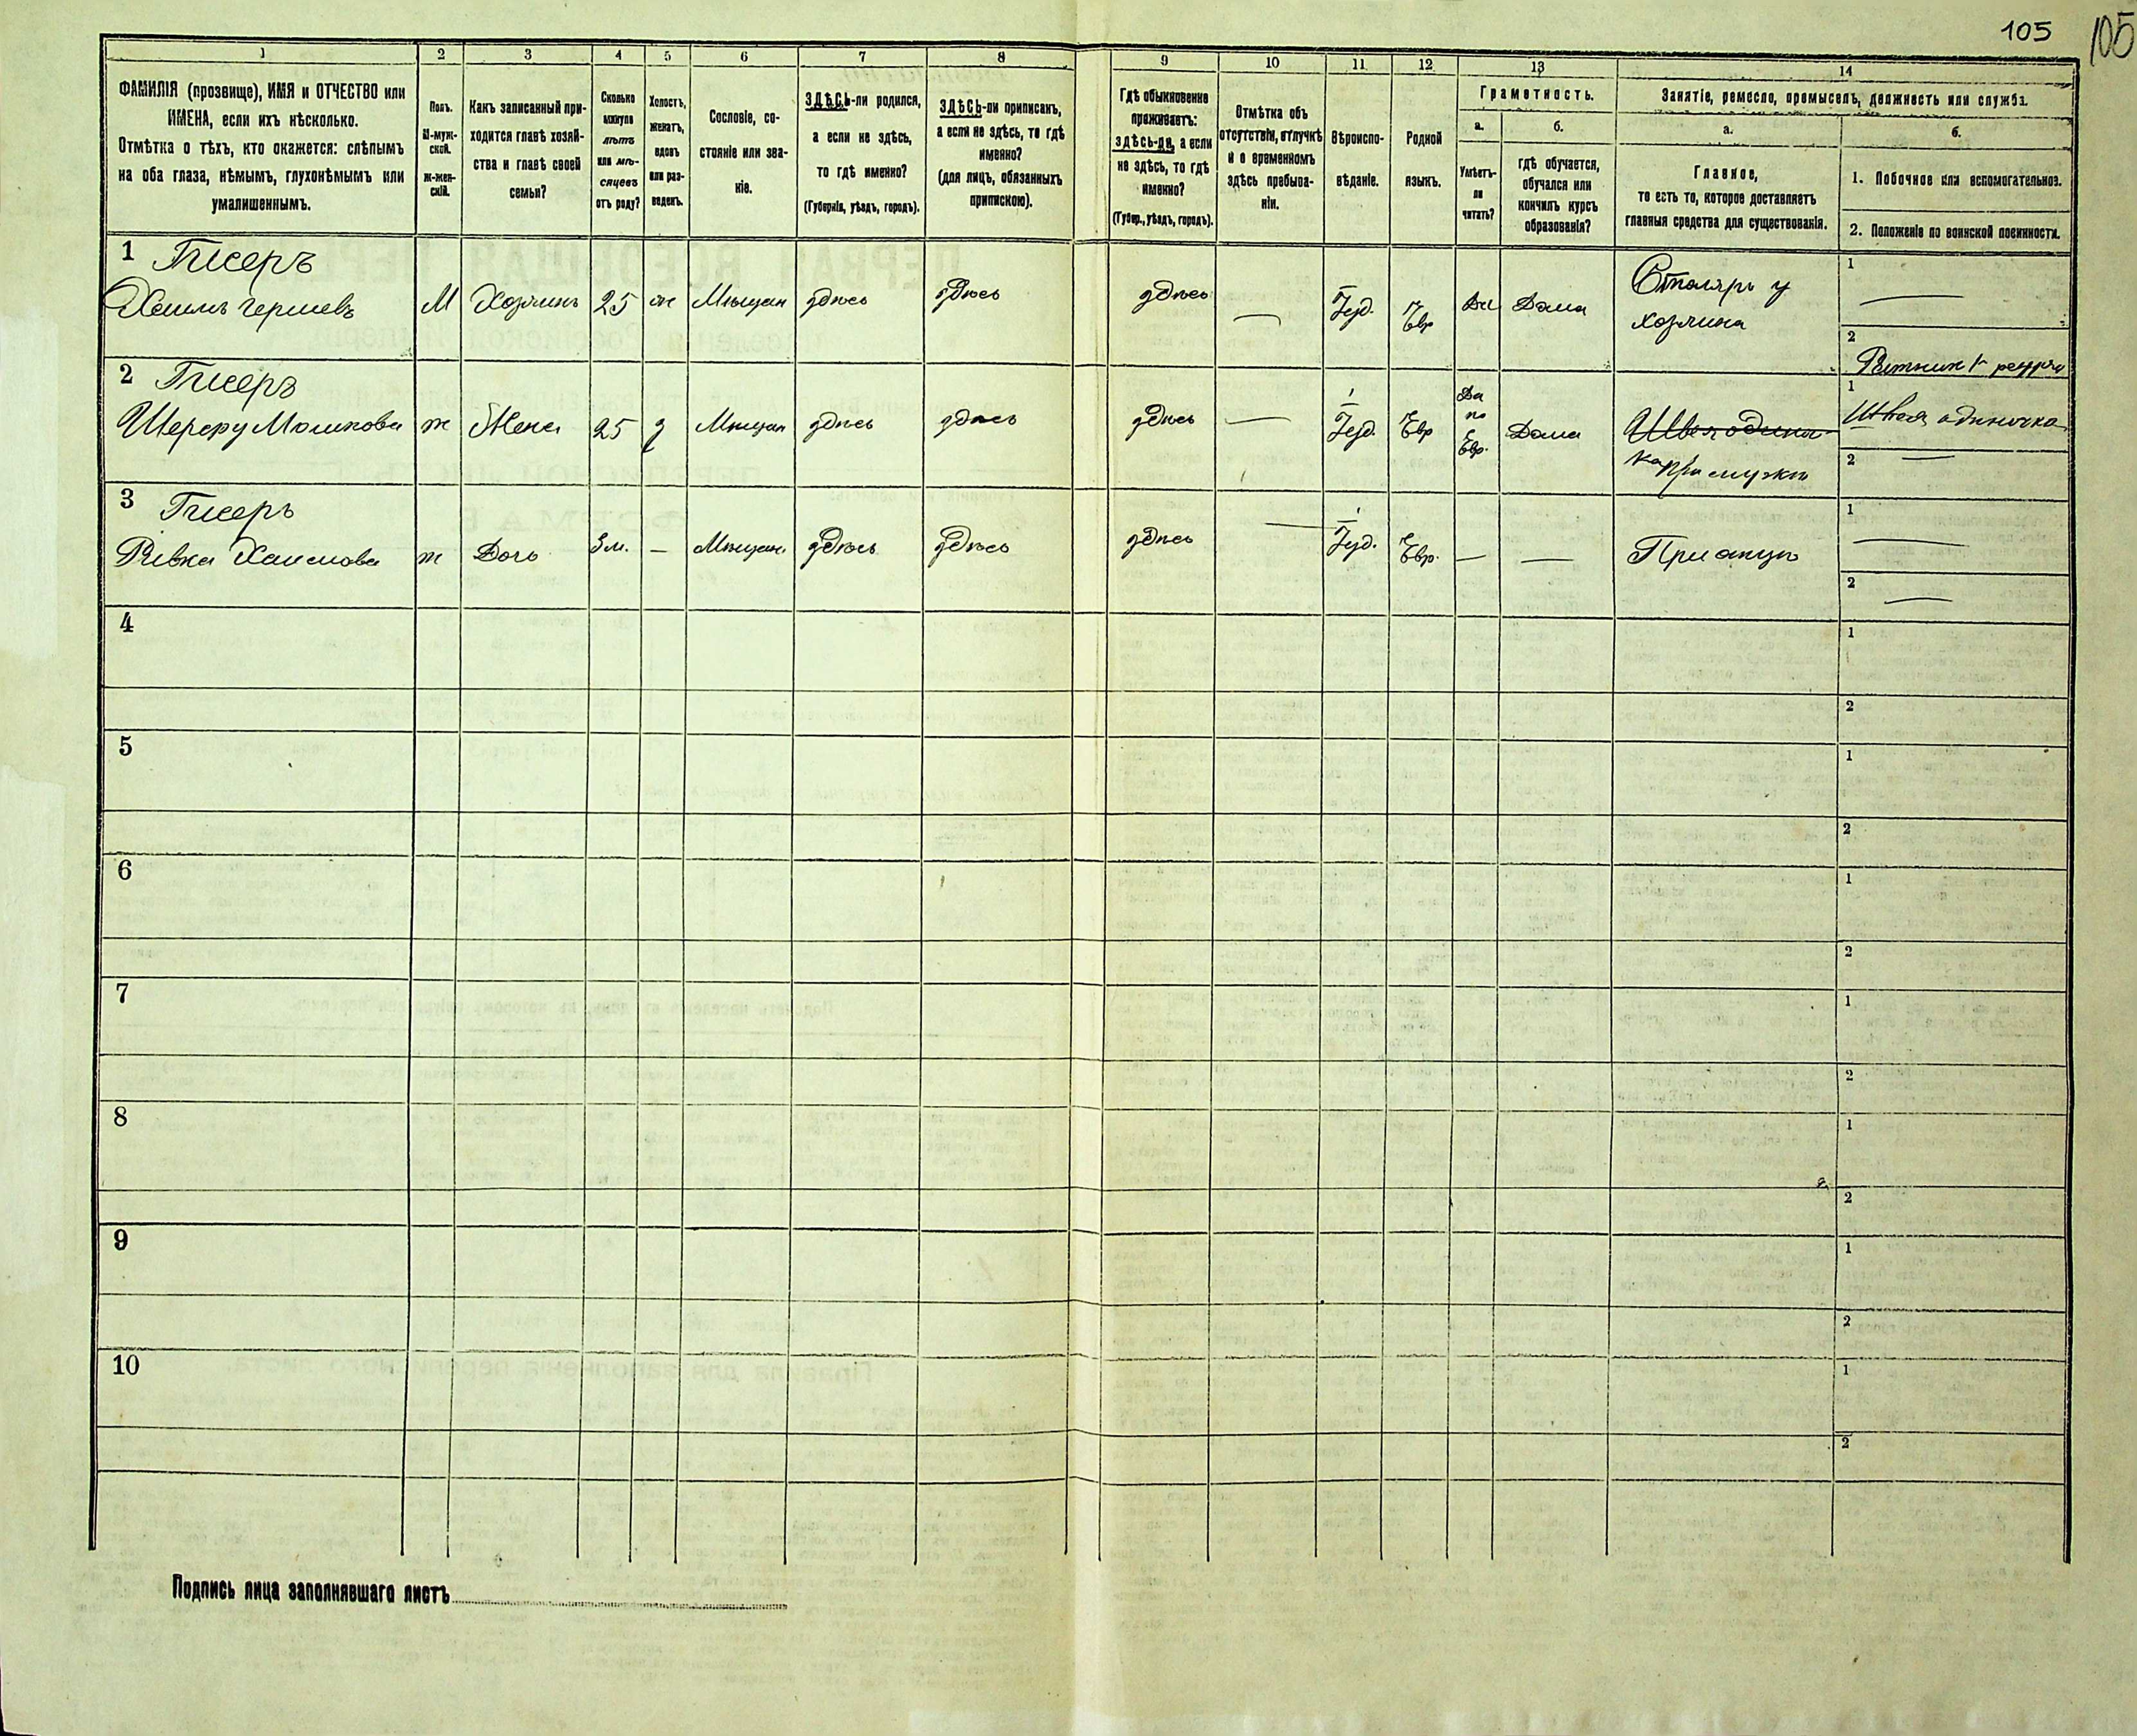 105
105
1
2
3
4
5
6
7
8
9
10
11
12
13
14
ФАМИЛІЯ (прозвище), ИМЯ и ОТЧЕСТВО или
ИМЕНА, если ихъ нѣсколько.
Отмѣтка о тѣхъ, кто окажется: слѣпымъ
на оба глаза, нѣмымъ, глухонѣмымъ или
умалишеннымъ.
Полъ.
М-муж-
ской.
Ж-жен-
скій.
Какъ записанный при-
ходится главѣ хозяй-
ства и главѣ своей
семьи?
Сколько
минуло
лѣтъ
или мѣ-
сяцевъ
отъ роду?
Холостъ,
женатъ,
вдовъ
или раз-
веденъ.
Сословіе, со-
стояніе или зва-
ніе.
ЗДѢСЬ-ли родился,
а если не здѣсь,
то гдѣ именно?
(Губернія, уѣздъ, городъ).
ЗДѢСЬ-ли приписанъ,
а если не здѣсь, то гдѣ
именно?
(для лицъ, обязанныхъ
припискою).
Гдѣ обыкновенно
проживаетъ:
ЗДѢСЬ-ли, а если
не здѣсь, то гдѣ
именно?
(Губер., уѣздъ, городъ).
Отмѣтка объ
отсутствіи, отлучкѣ
и о временномъ
здѣсь пребыва-
ніи.
Вѣроиспо-
вѣданіе.
Родной
языкъ.
Грамотность.
а.
Умѣетъ-
ли
читать?
б.
гдѣ обучается,
обучался или
кончилъ курсъ
образованія?
Занятіе, ремесло, промыселъ, должность или служба.
а.
Главное,
то есть то, которое доставляетъ
главныя средства для существованія.
б.
1. Побочное или вспомогательное.
2. Положеніе по воинской повинности.
1 Гисеръ
Хаимъ Гершевъ М Хозяинъ 25 ж Мѣщан здѣсь здѣсь здѣсь — Іуд. Евр Да Дома Столяръ у
хозяина
1 —
2 Ратник 1 разря
2 Гисеръ
Мошкова ж Жена 25 з Мѣщан здѣсь здѣсь здѣсь — Іуд. Евр Да
по
Евр. Дома Швея одиноч
при мужѣ
1 Швея одиночка
2 —
3 Гисеръ
Ривка Хаимова ж Дочь 3 м. — Мѣщан. здѣсь здѣсь здѣсь — Іуд. Евр. — — При отцѣ
1 —
2 —
4
1
2
5
1
2
6
1
2
7
1
2
8
1
2
9
1
2
10
1
2
Подпись лица заполнявшаго листъ